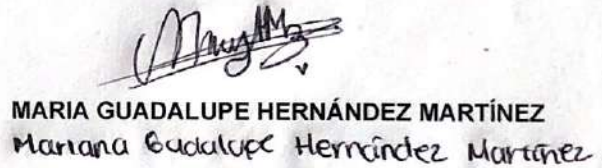 MARIA GUADALUPE HERNÁNDEZ MARTÍNEZ
Mariana Guadalupe Hernández Martínez